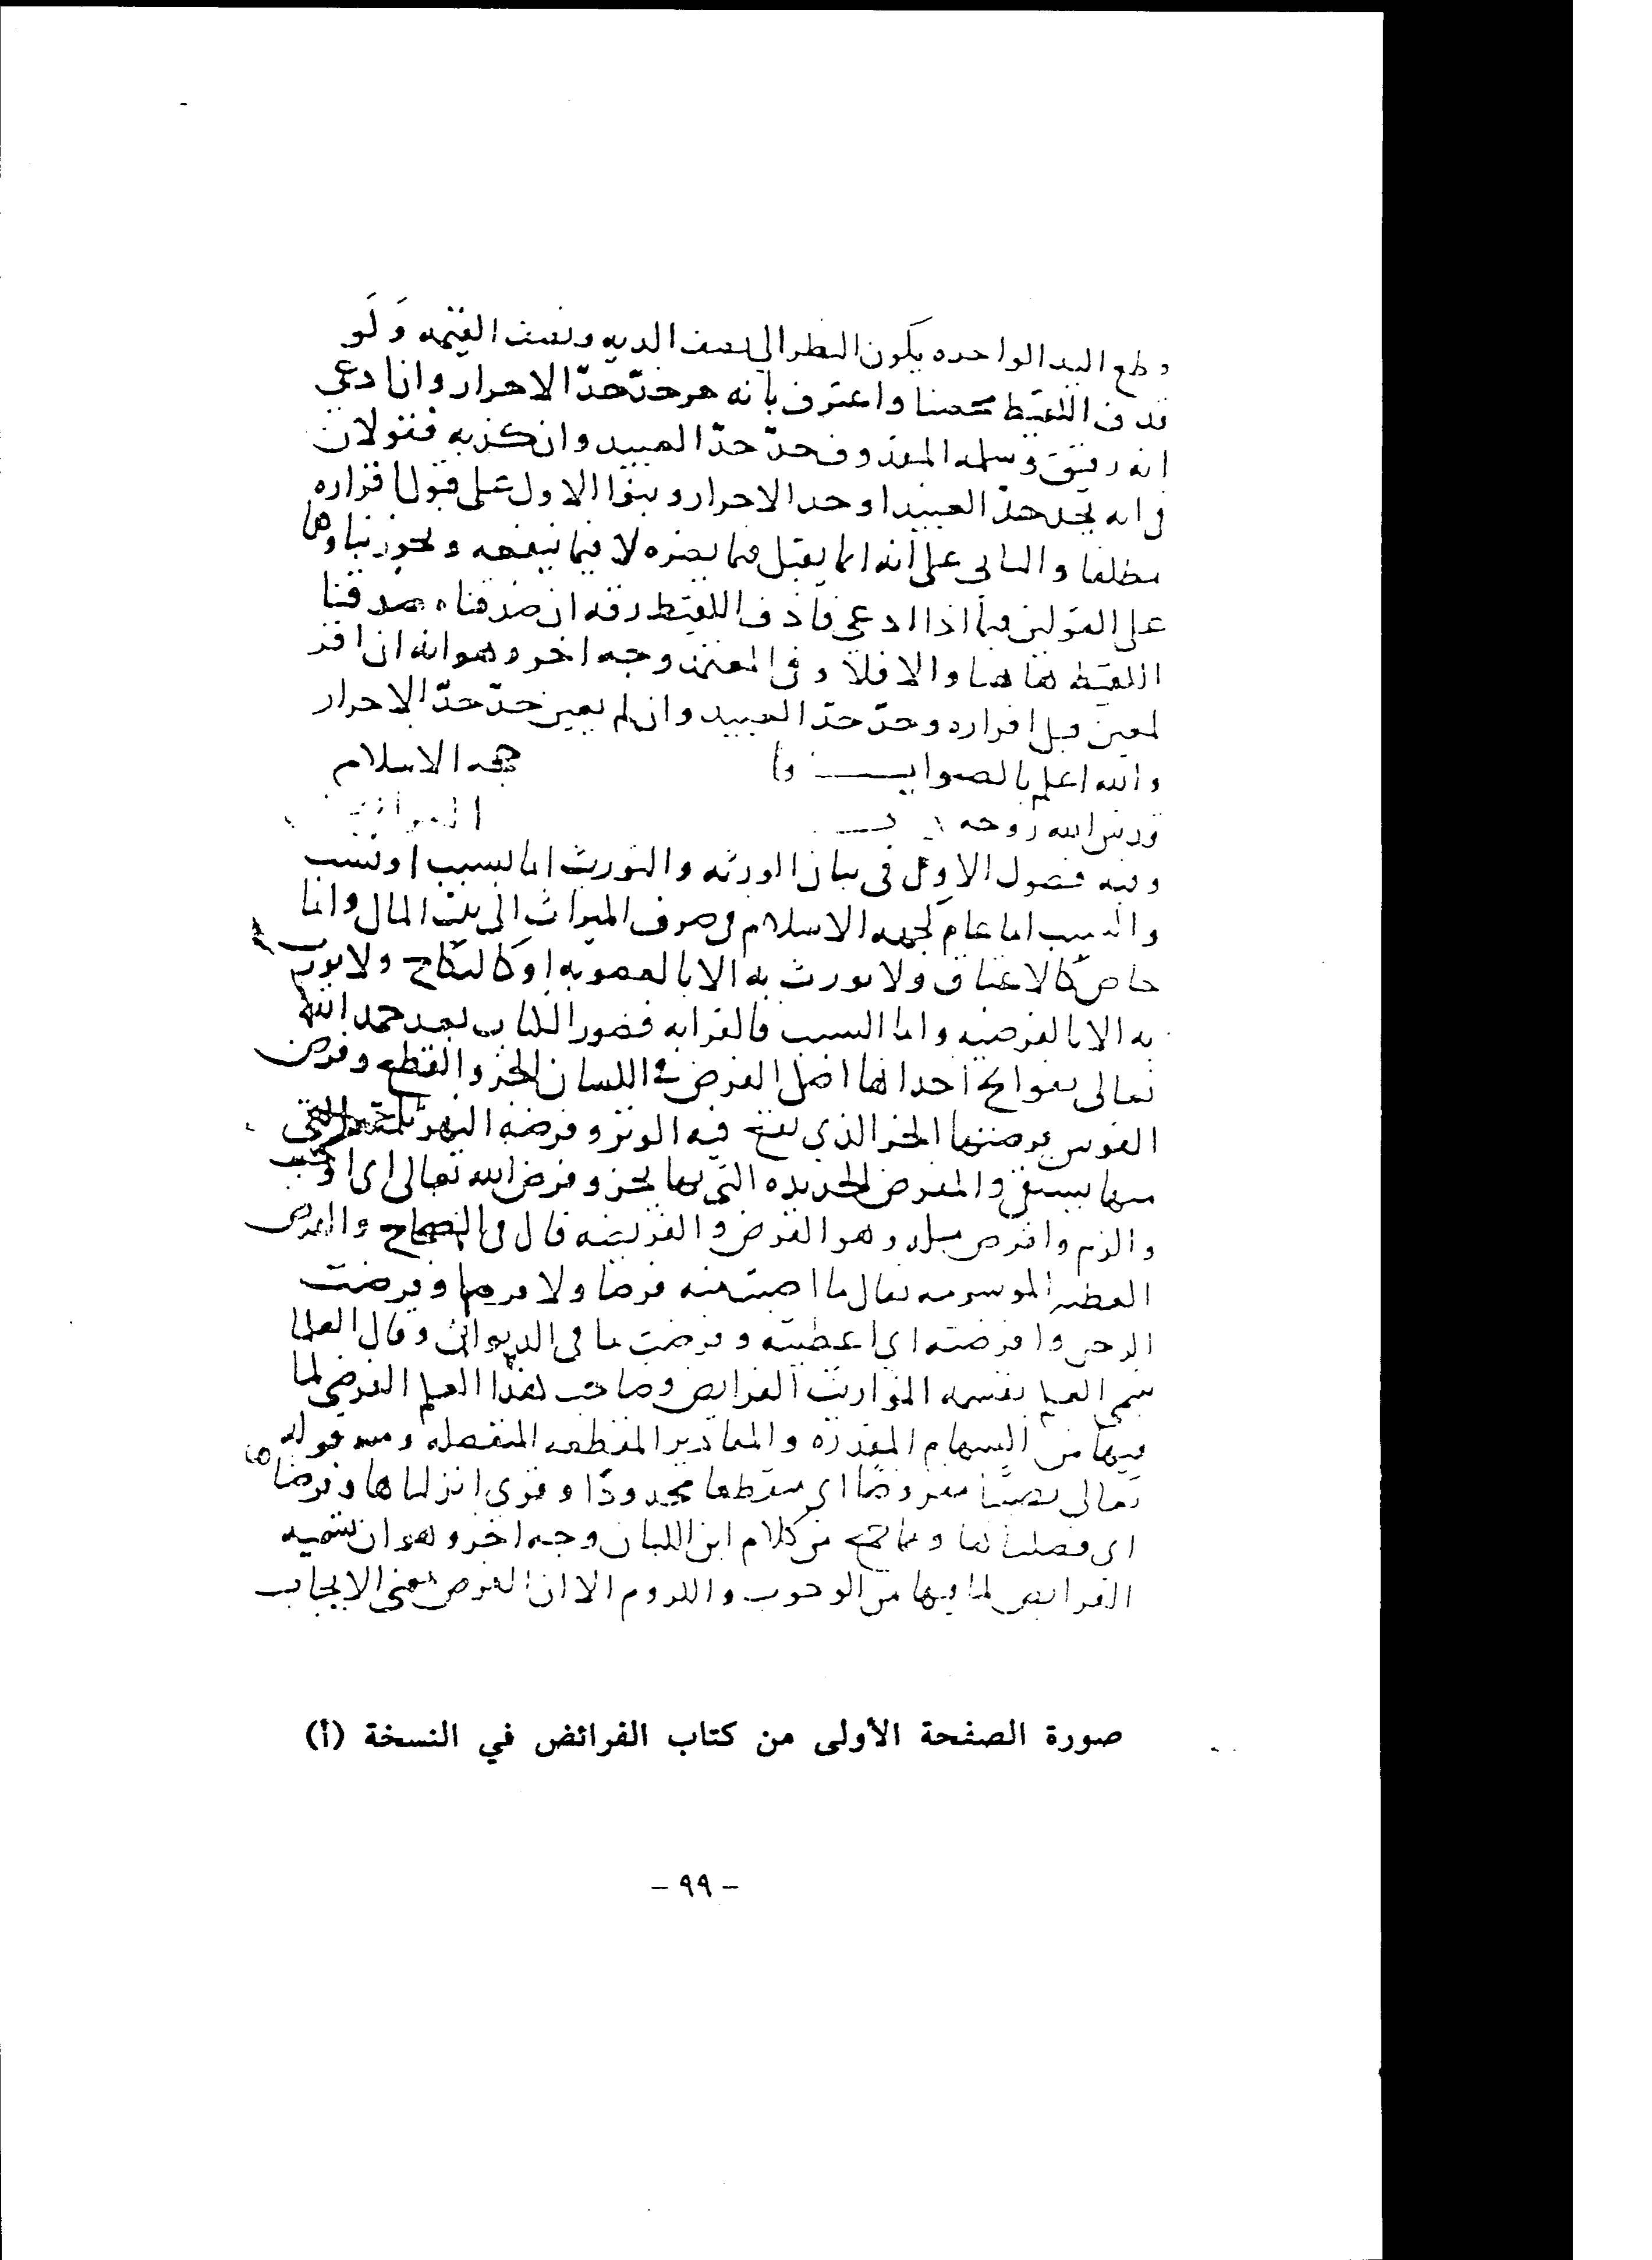 وقطع اليد الواحدة يكون النظر الى نصف الديه ونصف القيمه وَلَو
قذف اللقيط محصنا واعترف بانه حر حدّ حدّ الاحرار وان ادعى
انه رقيق وسلمه المقذوف حدّ حدّ العبيد وان كذبه فقولان
فى انه يحد حدّ العبيد او حد الاحرار وبنوا الاول على قبول اقراره
مطلقا والثانى على انه انما يقبل فيما يضره لا فيما ينفعه ويجوز بناوها
على القولين فيما اذا ادعى قاذف اللقيط رقه ان صدقناه صدقنا
اللقيط هاهنا والا فلا وفى المعتمد وجه اخر وهو انه ان اقر
لمعين قبل اقراره وحدّ حدّ العبيد وان لم يعين حدّ حدّ الاحرار
والله اعلم بالصواب حجه الاسلام
قدس الله روحه
وفيه فصول الاول فى بيان الورثه والتوريث اما بسبب او نسب
والسبب اما عام كجهه الاسلام فى صرف الميراث الى بيت المال واما
خاص كالاعتاق ولا يورث به الا بالعصوبه او كالنكاح ولا يورث
به الا بالفرضيه واما النسب فالقرابه فصدر الكتاب بعد حمد الله
تعالى بفواتح احداها اصل الفرض فى اللسان الحز والقطع وفرض
القوس فرضتها الحز الذى يقع فيه الوتر وفرضه النهر ثلمته التى
منها يستقى والمفرض الحديده التى بها يحز وفرض الله تعالى اى اوجب
والزم وافترض مثله وهو الفرض والفريضه قال فى الصحاح والفرض
العطيه الموسومه يقال ما اصبت منه فرضا ولا قرضا وفرضت
الرجل وافرضته اى اعطيته وفرضت له فى الديوان وقال العلما
سمى العلم بقسمه المواريث الفرايض وصاحب هذا العلم الفرضى لما
فيها من السهام المقدره والمقادير المقتطعه المنفصله ومنه قوله
تعالى نصيبا مفروضا اى مقتطعا محدودا وقرى انزلناها وفرضناها
اى فصلناها من كلام ابن اللبان وجه اخر وهو ان تسميه
الفرايض لما فيها من الوجوب واللزوم الا ان الفرض بمعنى الايجاب
صورة الصفحة الأولى من كتاب الفرائض في النسخة (أ)
- ٩٩ -